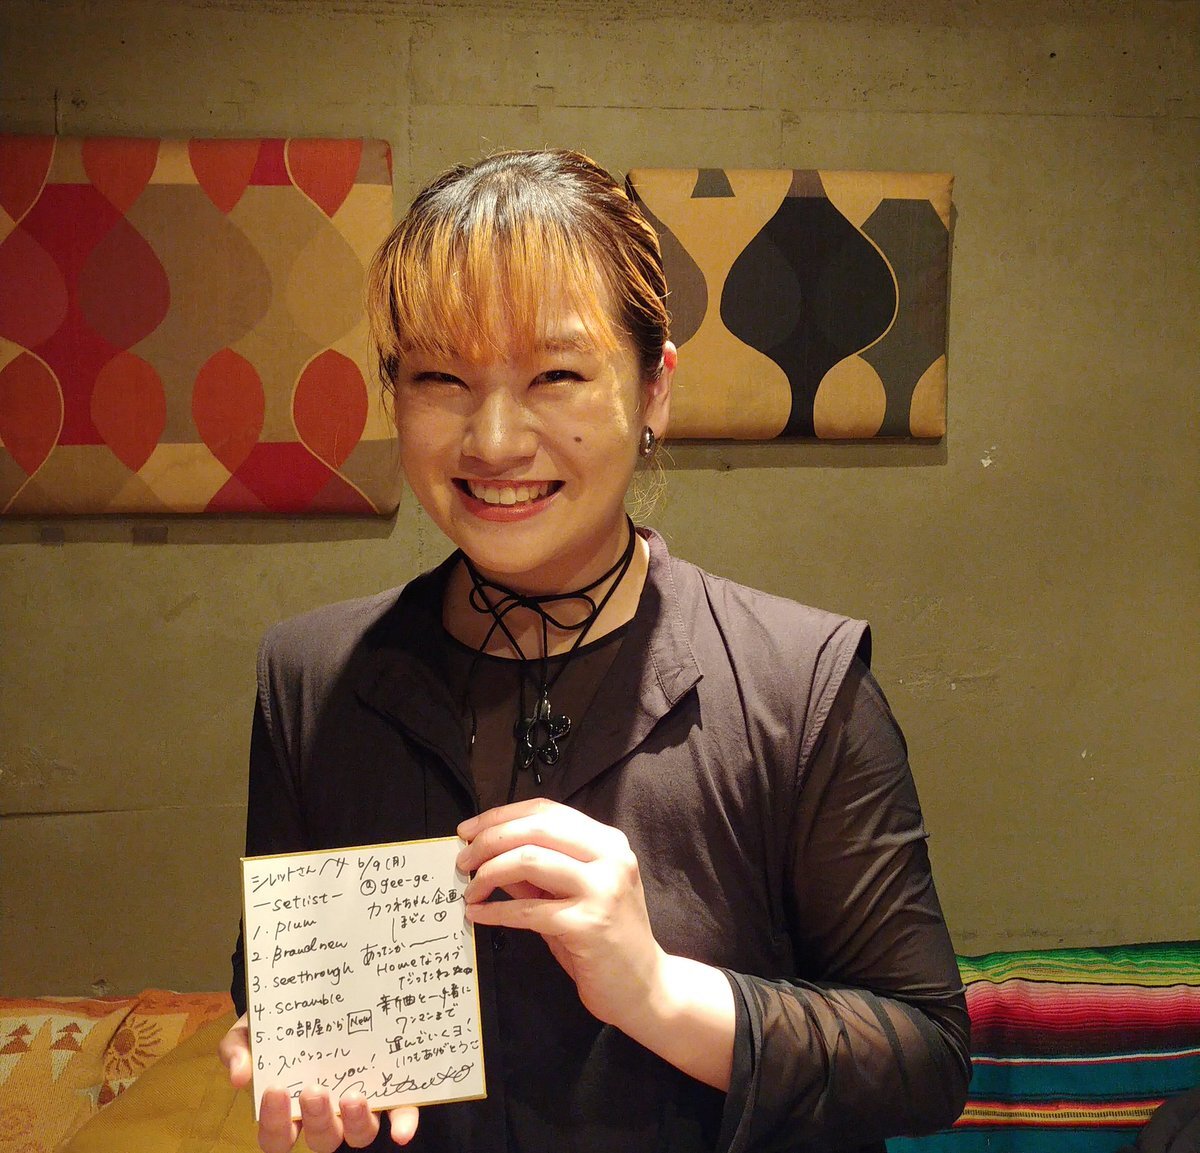 シレットさん 6/9(月)
@gee-ge.
-setlist-
1. plum
2. Brand new
3. seethrough
4. scramble
5. この部屋から New
6. スパンコール
Thank you!
カフネちゃん企画
しまどく♡
あったか〜い
Homeなライブ
だったね
新曲と一緒に
ワンマンまで
進んでいくヨ!
いつもありがとう